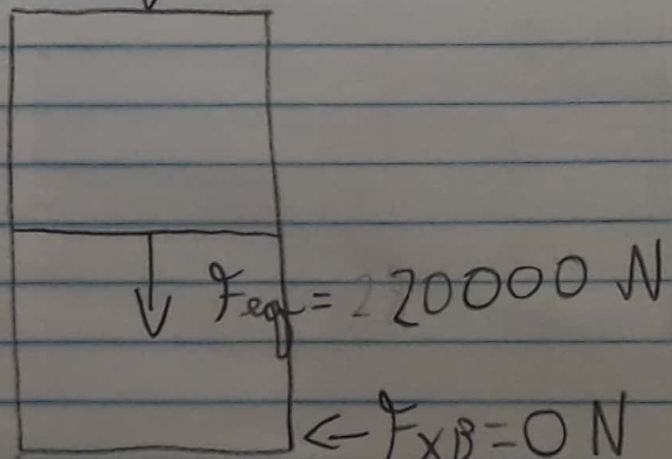 Feq = 20000 N
← FXB = 0 N